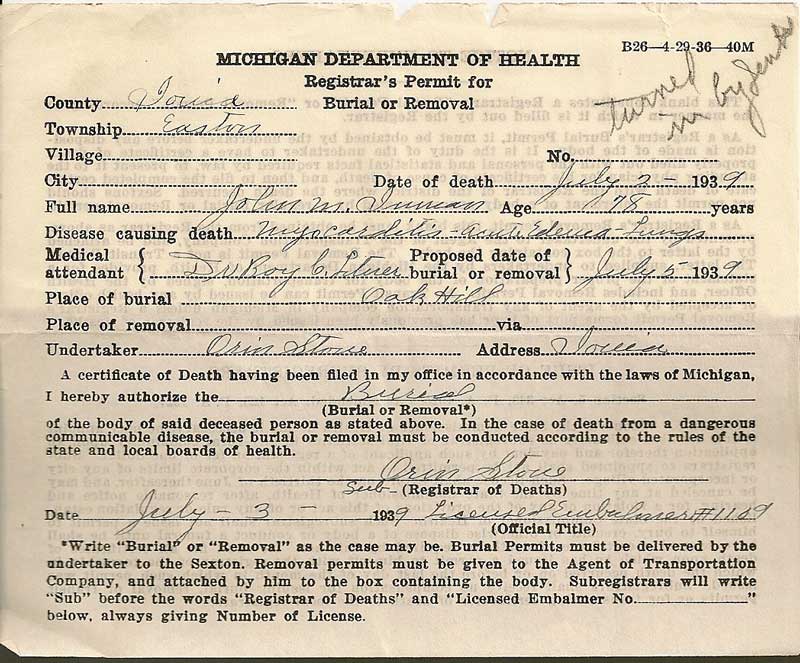 B26—4-29-36—40M
MICHIGAN DEPARTMENT OF HEALTH
Registrar's Permit for
Burial or Removal
turned
in by
County Ionia
Township Easton
Village No.
City Date of death July 2 - 1939
Full name John M. Inman Age 78 years
Disease causing death Myocarditis - Acute Edema - Lungs
Medical attendant { Dr Roy C. Proposed date of burial or removal } July 5 1939
Place of burial Oak Hill
Place of removal via
Undertaker Orin Stone Address Ionia
A certificate of Death having been filed in my office in accordance with the laws of Michigan,
I hereby authorize the Burial
(Burial or Removal*)
of the body of said deceased person as stated above. In the case of death from a dangerous
communicable disease, the burial or removal must be conducted according to the rules of the
state and local boards of health.
Orin Stone
Sub- (Registrar of Deaths)
Date July - 3 - 1939 Licensed Embalmer #1109
(Official Title)
*Write "Burial" or "Removal" as the case may be. Burial Permits must be delivered by the
undertaker to the Sexton. Removal permits must be given to the Agent of Transportation
Company, and attached by him to the box containing the body. Subregistrars will write
"Sub" before the words "Registrar of Deaths" and "Licensed Embalmer No. "
below, always giving Number of License.